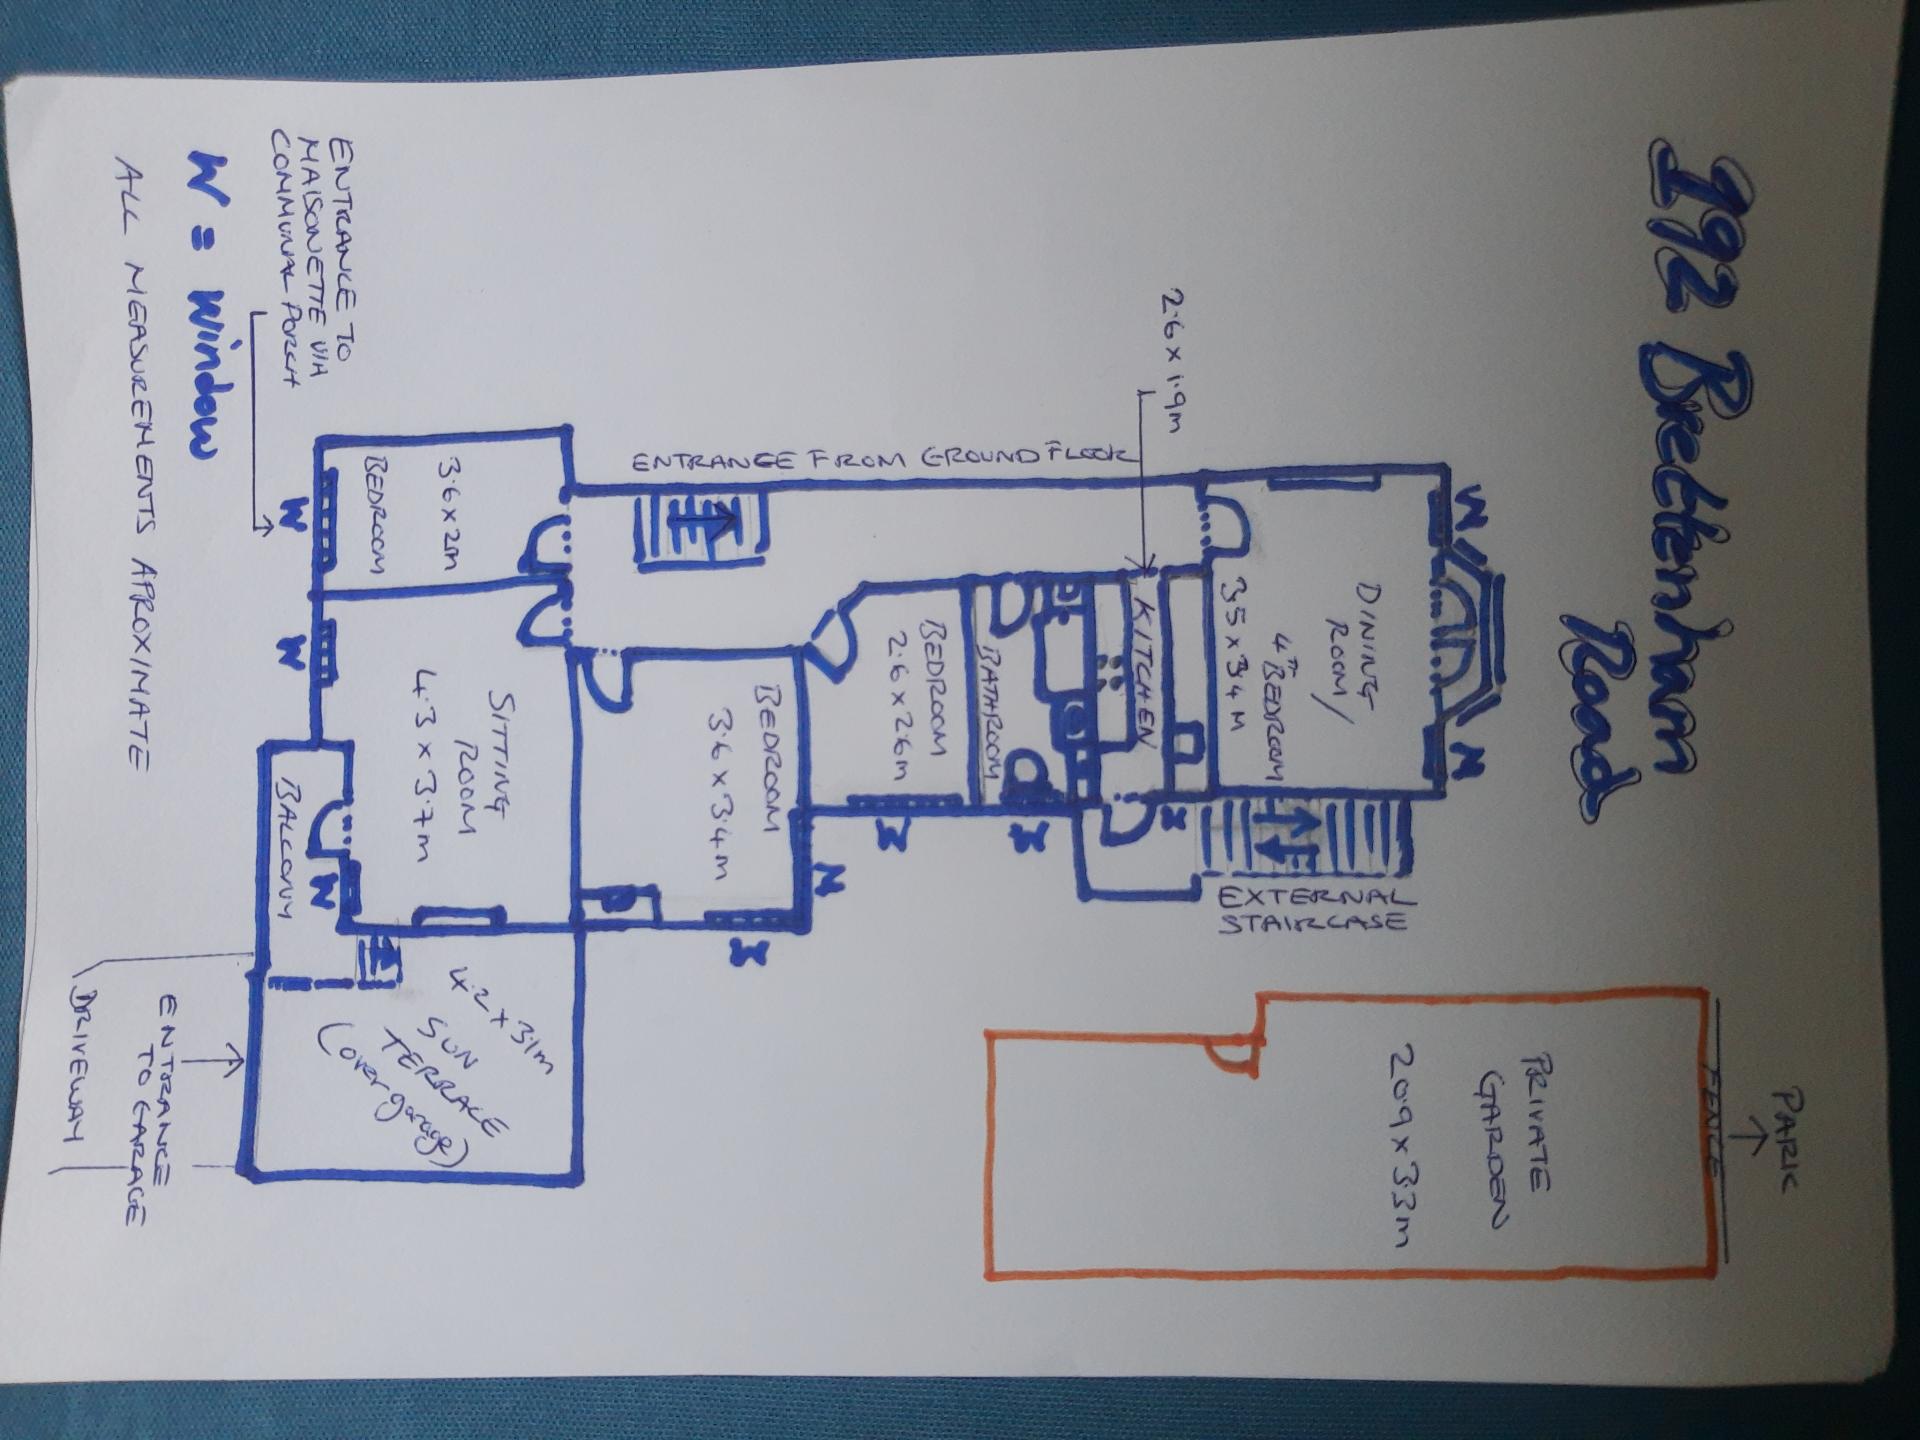 192 Brettenham
Road
PARK
FENCE
PRIVATE
GARDEN
20.9 x 3.3m
W
W
DINING
ROOM /
4TH BEDROOM
3.5 x 3.4 M
EXTERNAL
STAIRCASE
2.6 x 1.9m
KITCHEN
W
BATHROOM
W
BEDROOM
2.6 x 2.6m
W
ENTRANCE FROM GROUND FLOOR
BEDROOM
3.6 x 3.4m
W
W
SITTING
ROOM
4.3 x 3.7m
3.6 x 2m
BEDROOM
W
W
W
BALCONY
4.2 + 3.1m
SUN
TERRACE
(over garage)
ENTRANCE TO
MAISONETTE VIA
COMMUNAL PORCH
W = Window
ALL MEASUREMENTS APROXIMATE
ENTRANCE
TO GARAGE
DRIVEWAY